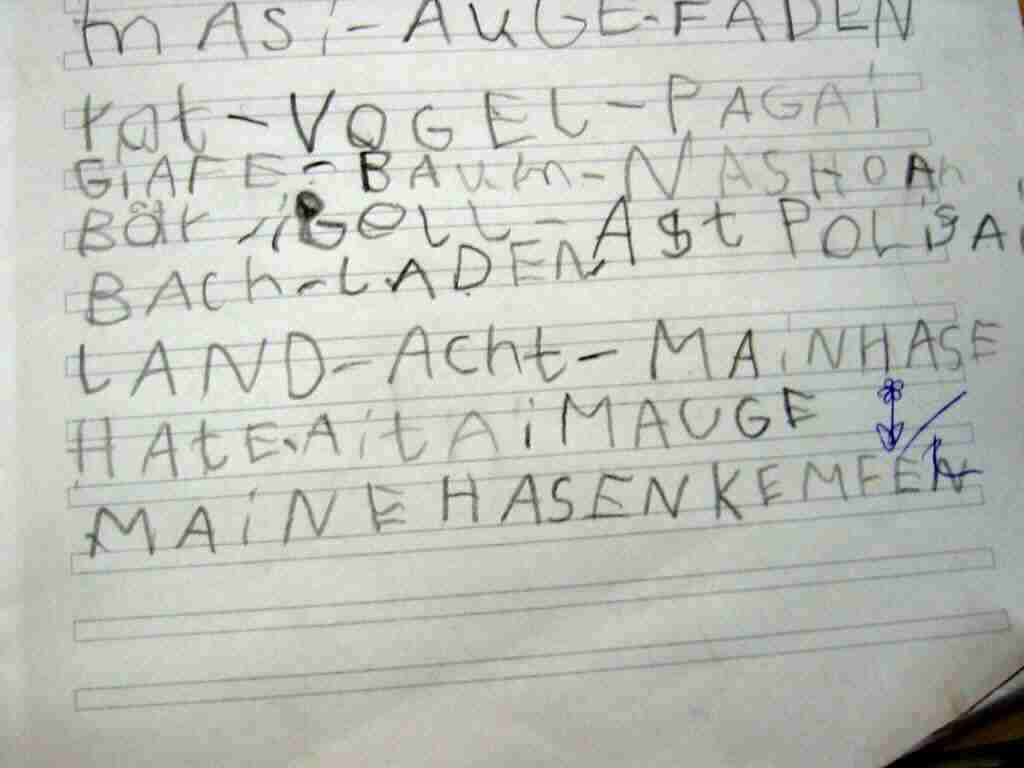 mASi-AUGE-FADEN
rot-VOGEL-PAGAi
GiAFE-BAUm-NASHOAn
BäR iGell-ASt POLiSAi
BACh-LADEN
LAND-ACht-MAiNHASE
HAtE AitAiMAUGE
MAiNEHASENKEMFEN